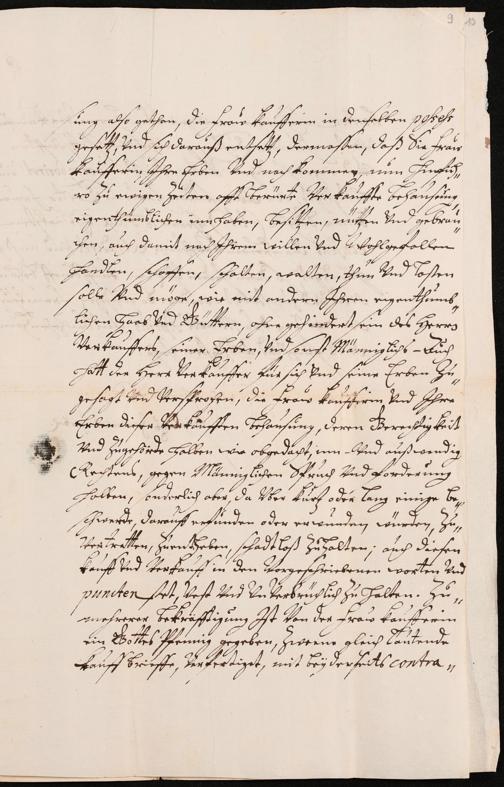 9 10
ung also gethan, die fraw Kaufferin in denselben posess
gesetzt, und sich darauß entsetzt, dermassen, daß Sie fraw
Kaufferin Ihre Erben Und nachkommen, nun hinfüh„
ro zu ewigen Zeiten offt berürte Verkauffte behausung,
eigenthumblichen innhaben, besitzen, nützen Und gebrau„
chen, auch damit nach Ihrem willen Und Wohlgefallen
handlen, schaffen, schalten, walten, thun Und lassen
solle Und möge, wie mit andern Ihren eigenthumb„
lichen Haab Und Güttern, ohne gehindert sein des Herren
Verkauffers, seiner Erben, Und sonst Männiglichs. Auch
hatt der Herr Verkauffer für sich Und seine Erben Zu„
gesagt Und Versprochen, die fraw Kaufferin Und Ihre
Erben dieser Verkaufften behausung, deren Gerechtigkeit
Und Zugehörde halben wie obgedacht, inn- Und außwendig
Rechtens, gegen Männiglichen Spruch Und forderung
halben, sonderlich aber, da Über kurtz oder lang einige be„
schwerde, darauff erfunden oder erwunden würden, Zu„
vertretten, Zuentheben, schadtloß Zuhalten; auch diesen
Kauff Und Verkauff in den Vorgeschriebenen worten Und
puncten stet, Vest Und Unverbrüchlich Zu halten. Zu„
mehrerer bekräfftigung Ist Von der fraw Kaufferin
ein Gottes Pfennig gegeben, Zweene gleich lautende
Kauff brieffe, Verfertiget, mit beyderseits contra„